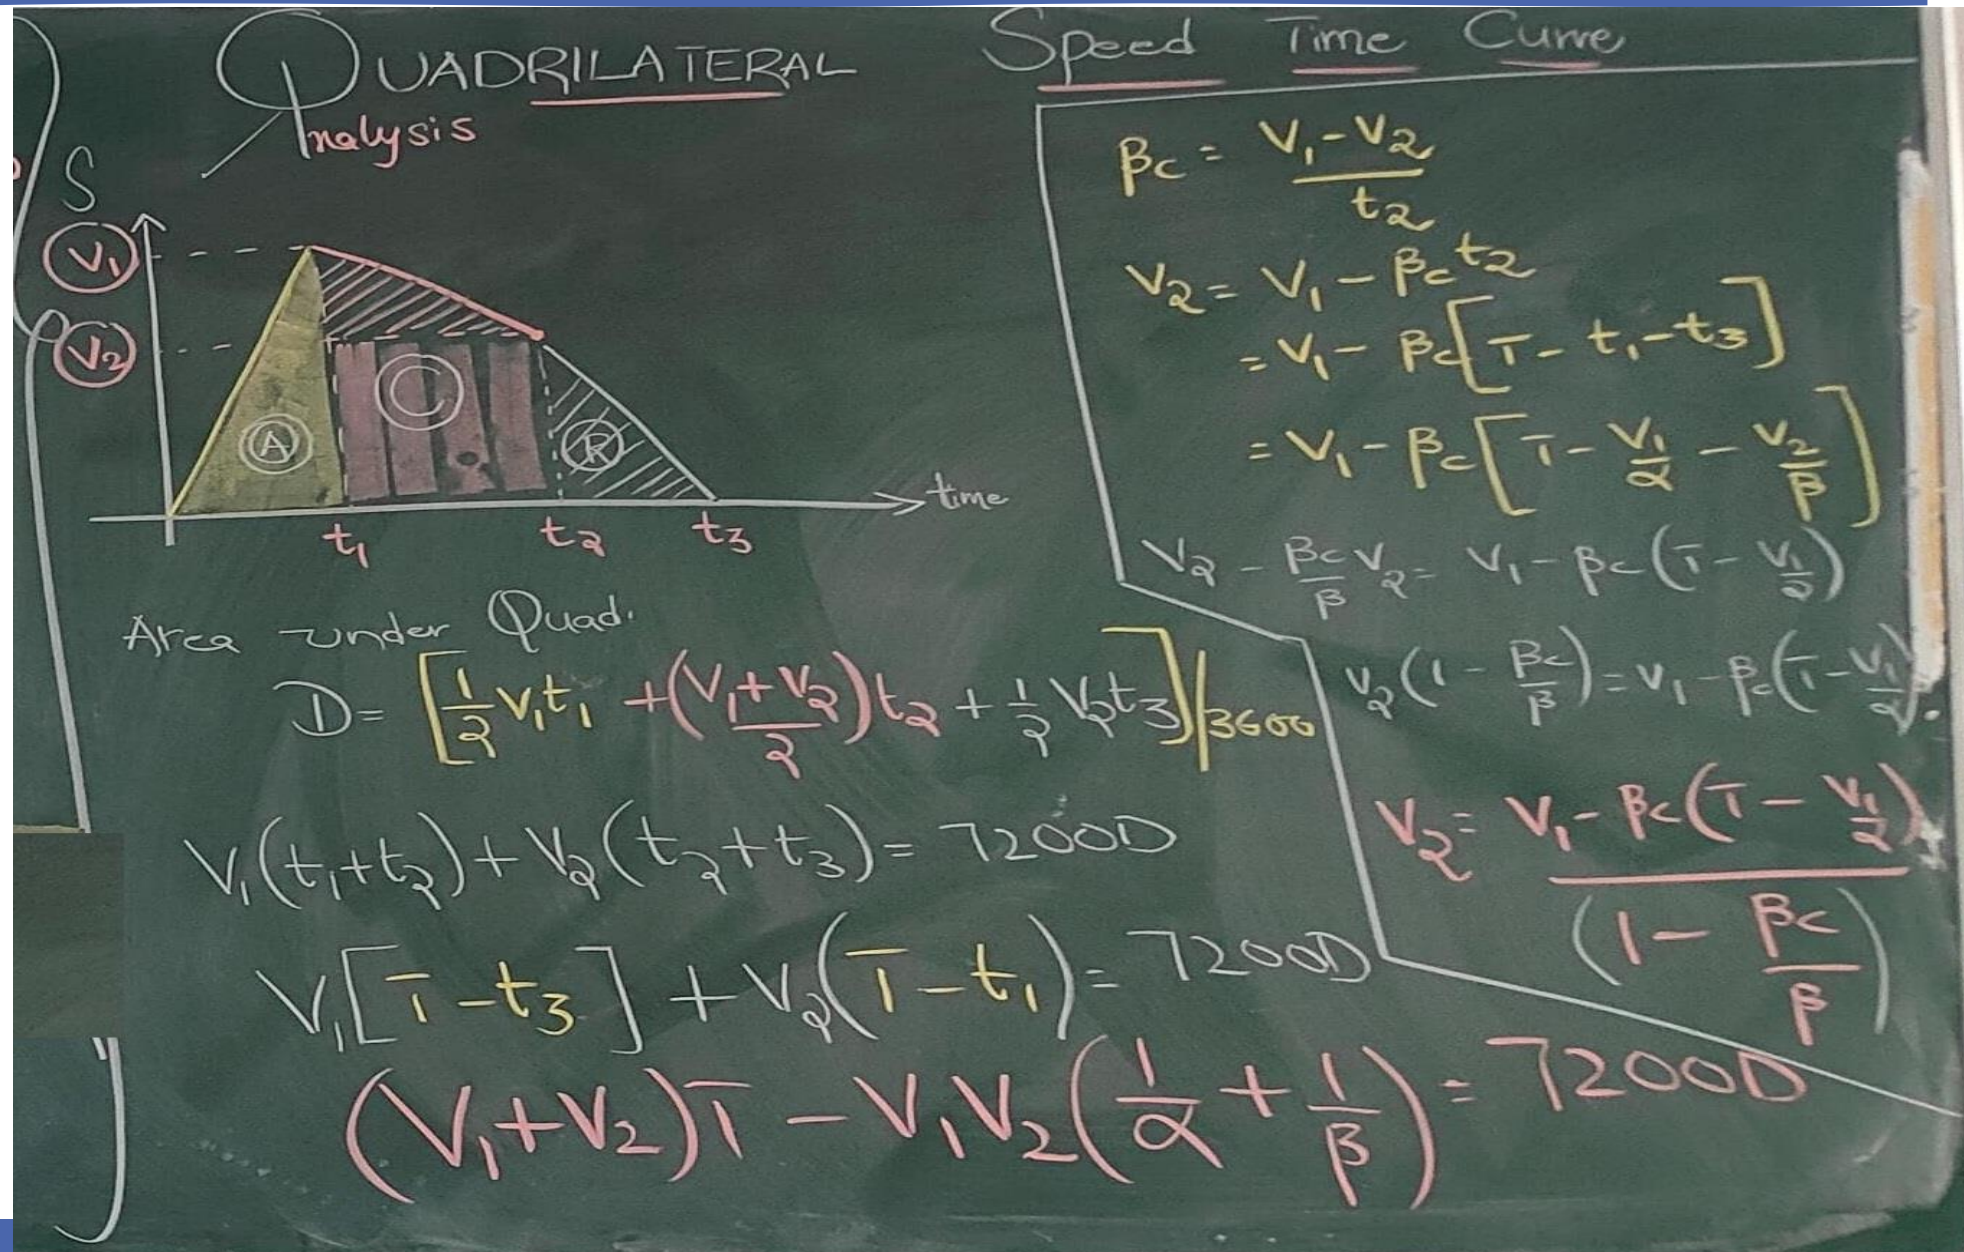 QUADRILATERAL Speed Time Curve
Analysis
S
V₁
V₂
A
C
R
time
t₁ t₂ t₃
Area under Quad.
D = [1/2 V₁t₁ + ((V₁+V₂)/2)t₂ + 1/2 V₂t₃]/3600
V₁(t₁+t₂) + V₂(t₂+t₃) = 7200D
V₁[T-t₃] + V₂(T-t₁) = 7200D
(V₁+V₂)T - V₁V₂(1/α + 1/β) = 7200D
βc = (V₁-V₂)/t₂
V₂ = V₁ - βc t₂
= V₁ - βc[T - t₁ - t₃]
= V₁ - βc[T - V₁/α - V₂/β]
V₂ - (βc/β)V₂ = V₁ - βc(T - V₁/α)
V₂(1 - βc/β) = V₁ - βc(T - V₁/α).
V₂ = (V₁ - βc(T - V₁/α))/(1 - βc/β)